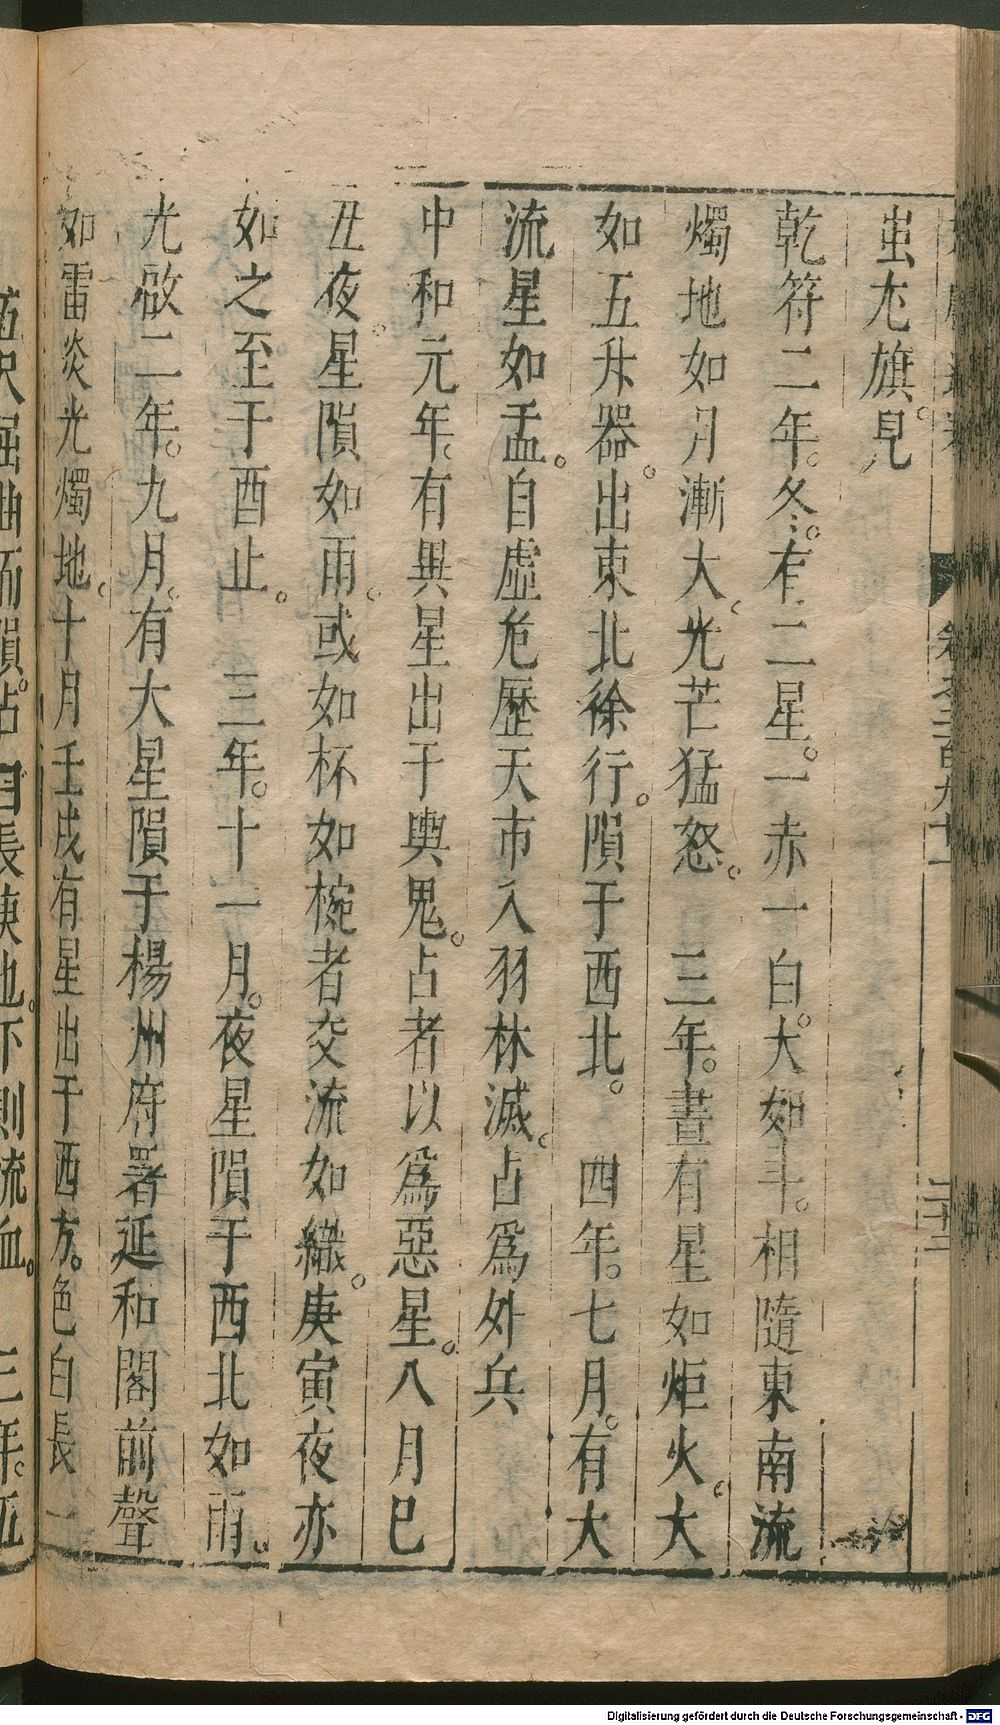 蚩尤旗。見
乾符二年。冬。有二星。一赤一白。大如斗。相隨東南流
燭地如月漸大。光芒猛怒。　三年。晝有星如炬火。大
如五升器。出東北徐行。隕于西北。　四年。七月。有大
流星如盂。自虛危歷天市入羽林滅。占爲外兵
中和元年。有異星出于輿鬼。占者以爲惡星。八月巳
丑夜。星隕如雨。或如杯如椀者交流如織。庚寅夜亦
如之至于酉止。　三年。十一月。夜星隕于西北如雨。
光啟二年。九月。有大星隕于楊州府署延和閣前聲
如雷炎光燭地。十月壬戌有星出于西方。色白長一
屈曲而隕。占曰長庚也。下則流血。　三年。五
卷之二百九十一
二十二
Digitalisierung gefördert durch die Deutsche Forschungsgemeinschaft - DFG